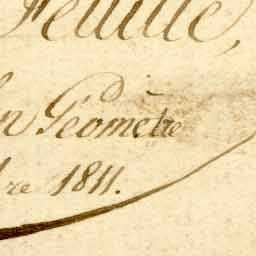 Feuille,
n Géometre
re 1811.